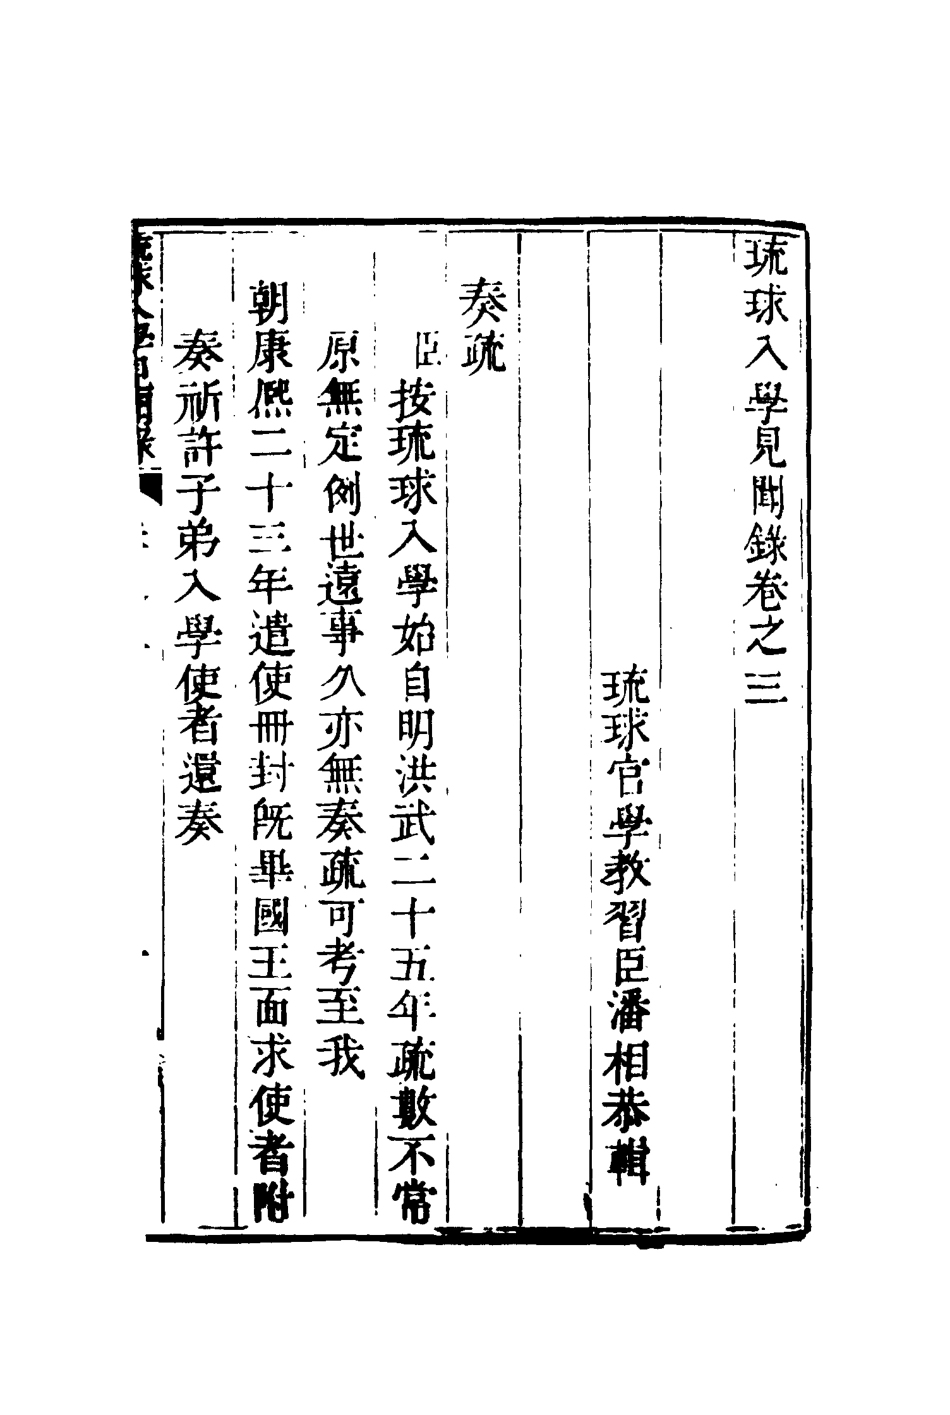 琉球入學見聞錄卷之三
琉球官學教習臣潘相恭輯
奏疏
臣按琉球入學始自明洪武二十五年疏數不常
原無定例世遠事久亦無奏疏可考至我
朝康熙二十三年遣使冊封旣畢國王面求使者附
奏祈許子弟入學使者還奏
琉球入學見聞錄